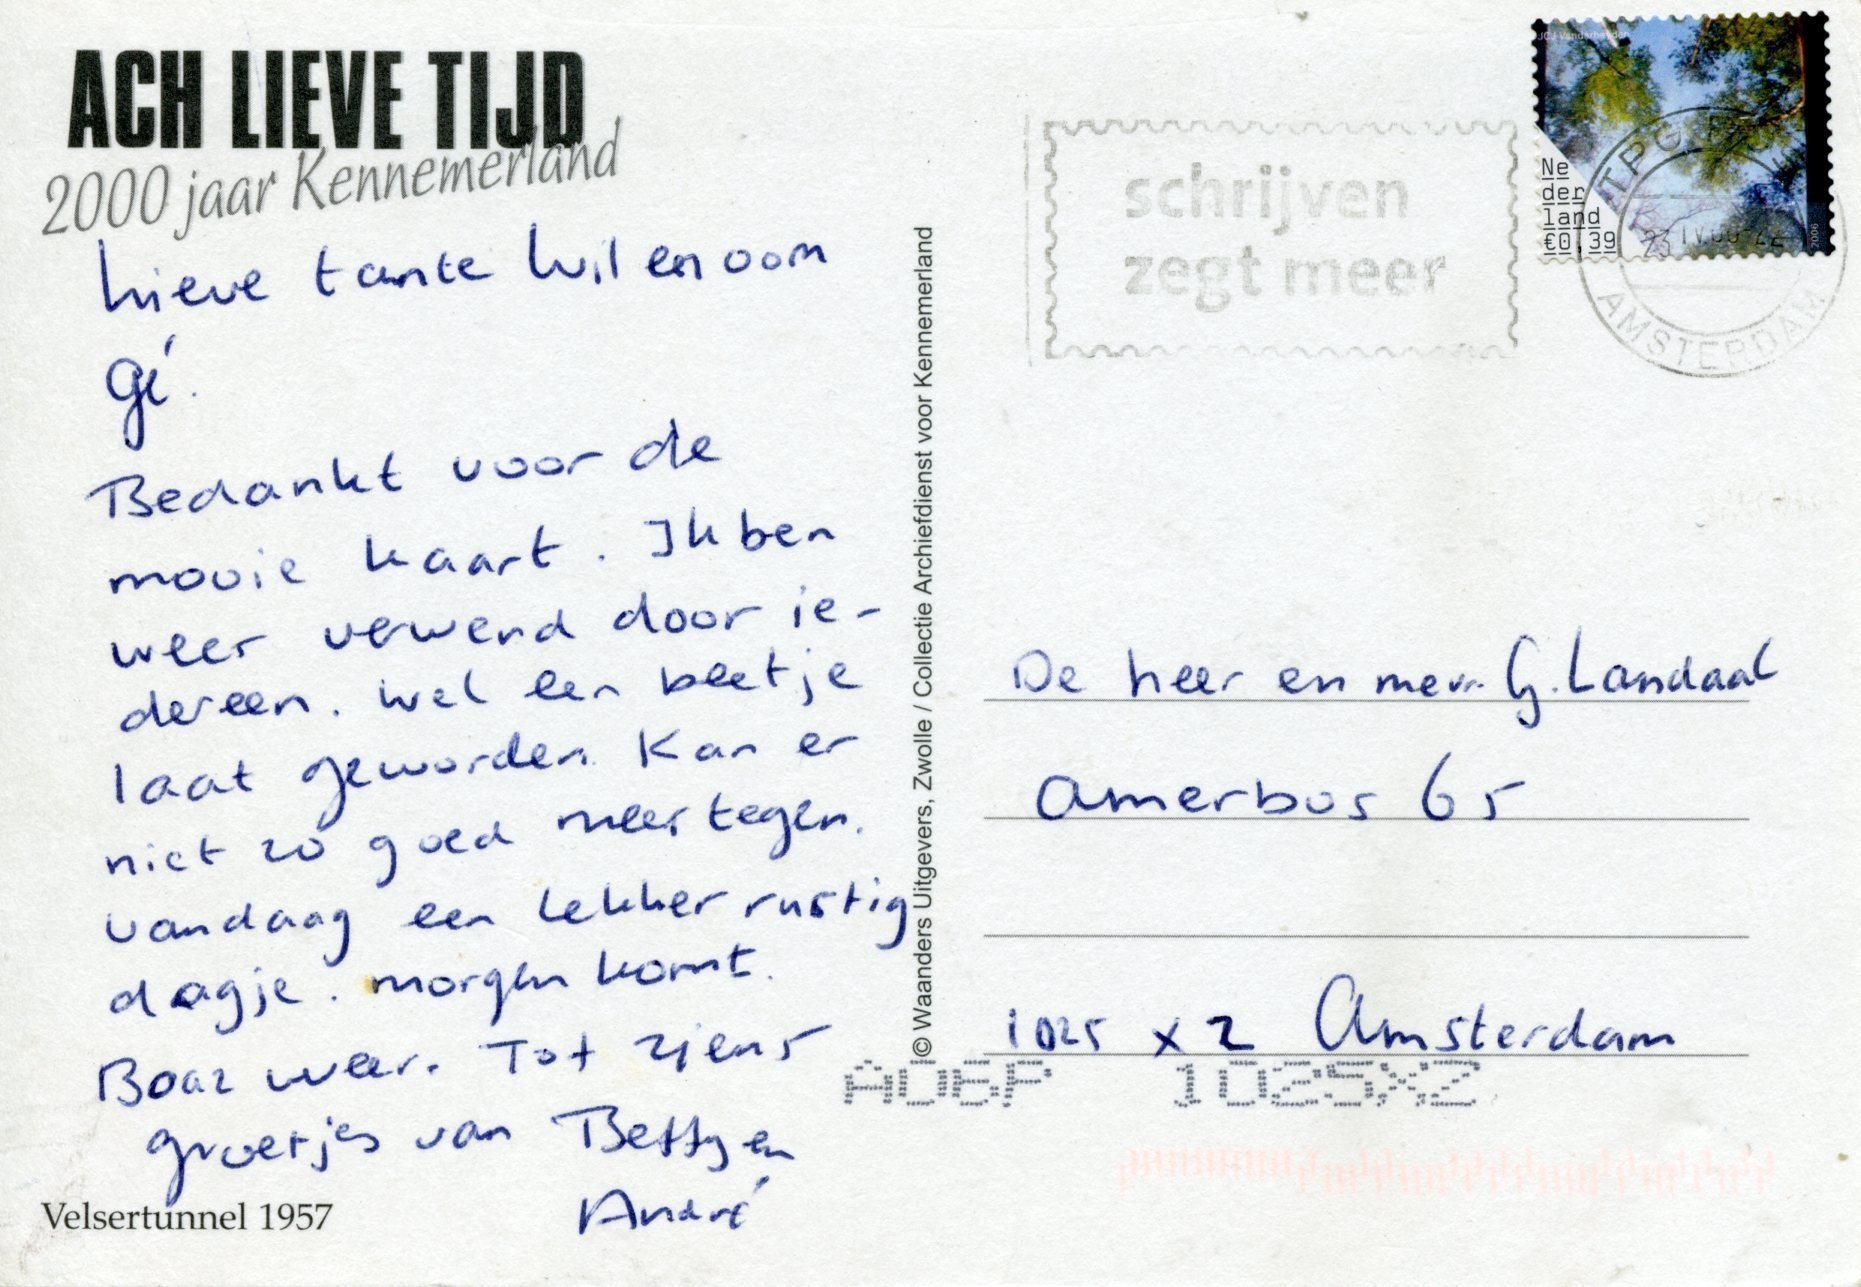 ACH LIEVE TIJD
2000 jaar Kennemerland
Lieve tante Wil en oom
Gé.
Bedankt voor de
mooie kaart. Ik ben
weer verwend door ie-
dereen. Wel een beetje
laat geworden. Kan er
niet zo goed meer tegen.
vandaag een lekker rustig
dagje. morgen komt.
Boaz weer. Tot ziens
groetjes van Betty en
André
Velsertunnel 1957
© Waanders Uitgevers, Zwolle / Collectie Archiefdienst voor Kennemerland
schrijven
zegt meer
JCJ Vanderheyden
Ne
der
land
€0,39
2006
TPG
AMSTERDAM
De heer en mevr. G. Landaal
Amerbos 65
1025 XZ Amsterdam
1025XZ